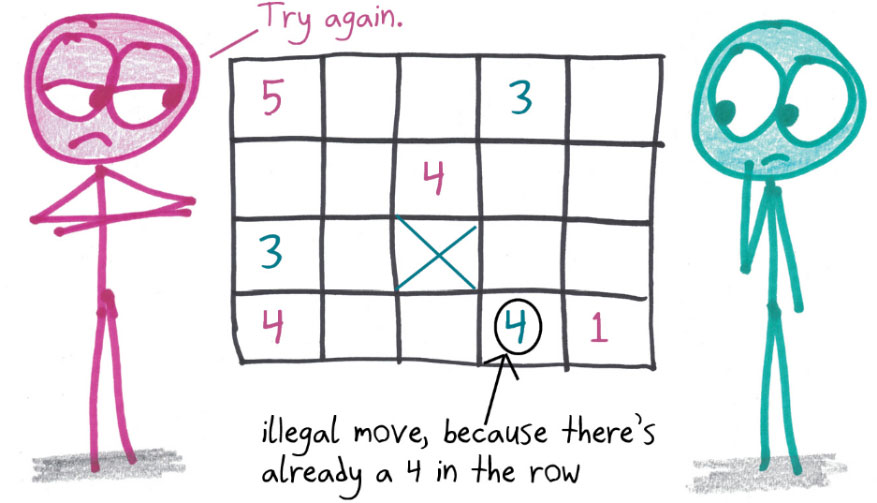 Try again.
5 3
4
3
4 4 1
illegal move, because there's
already a 4 in the row